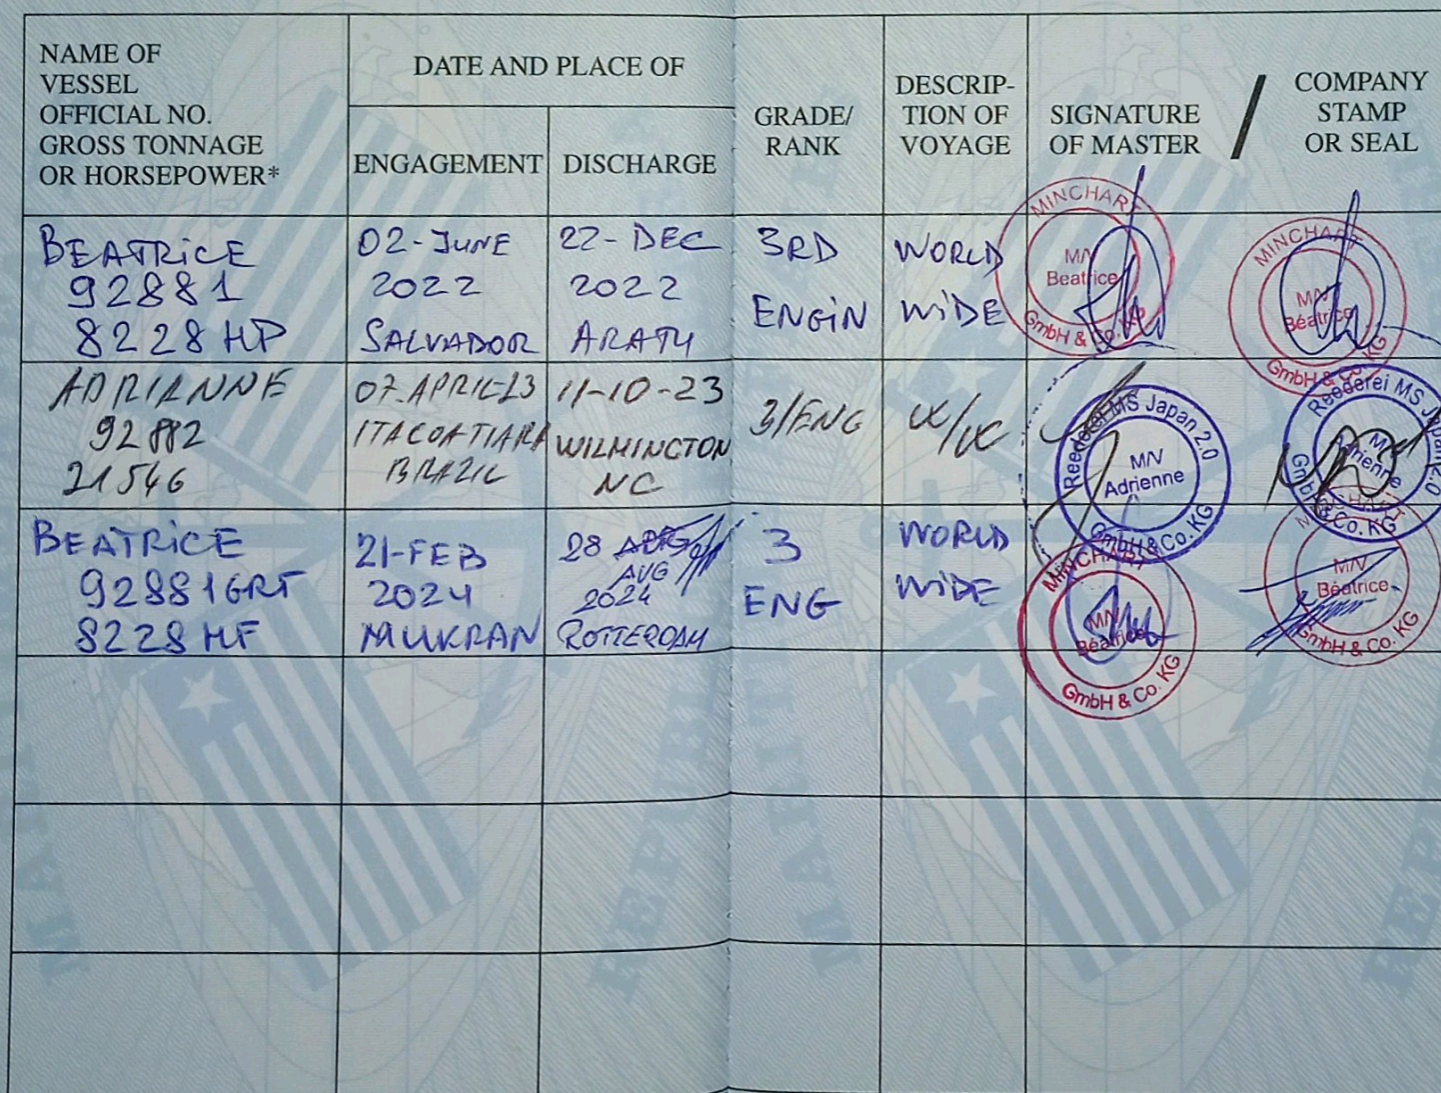 NAME OF
VESSEL
OFFICIAL NO.
GROSS TONNAGE
OR HORSEPOWER*
DATE AND PLACE OF
ENGAGEMENT
DISCHARGE
GRADE/
RANK
DESCRIP-
TION OF
VOYAGE
SIGNATURE
OF MASTER
/
COMPANY
STAMP
OR SEAL
BEATRICE
92881
8228 HP
02-JUNE
2022
SALVADOR
22-DEC
2022
ARATU
3RD
ENGIN
WORLD
WIDE
MINCHART
M/V
Beatrice
GmbH & Co. KG
MINCHART
M/V
Béatrice
GmbH & Co. KG
ADRIANNE
92882
21546
07.APRIL-23
ITACOATIARA
BRAZIL
11-10-23
WILMINGTON
NC
3/ENG
Reederei MS Japan 2.0
M/V
Adrienne
GmbH & Co. KG
Reederei MS Japan 2.0
M/V
Adrienne
GmbH & Co. KG
BEATRICE
92881GRT
8228 HF
21-FEB
2024
MUKRAN
28
AUG
2024
ROTTERDAM
3
ENG
WORLD
WIDE
MINCHART
M/V
Béatrice
GmbH & Co. KG
MINCHART
M/V
Béatrice
GmbH & Co. KG